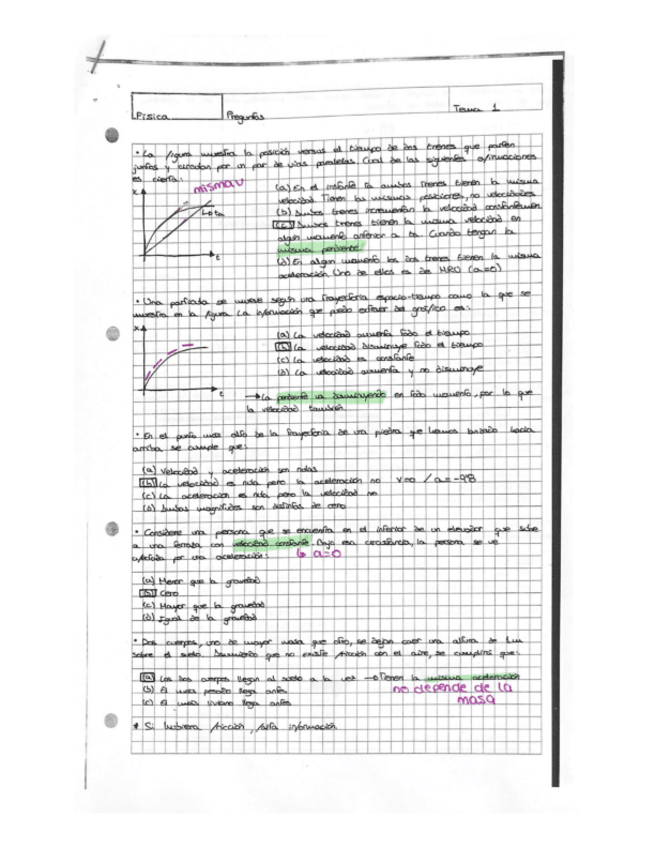 Física
Preguntas
Tema 1
• La figura muestra la posición versus el tiempo de dos trenes que parten
juntos y circulan por un par de vías paralelas. Cual de las siguientes afirmaciones
es cierta:
misma v
x
t
to ta
(a) En el instante ta ambos trenes tienen la misma
velocidad. Tienen las mismas posiciones, no velocidades
(b) Ambos trenes incrementan la velocidad constantemen
(c) Ambos trenes tienen la misma velocidad en
algún momento anterior a ta. Cuando tengan la
misma pendiente.
(d) En algún momento los dos trenes tienen la misma
aceleración. Uno de ellos es de MRU (a=0)
• Una partícula se mueve según una trayectoria espacio-tiempo como la que se
muestra en la figura. La información que puedo extraer del gráfico es:
x
t
(a) La velocidad aumenta todo el tiempo
(b) La velocidad disminuye todo el tiempo
(c) La velocidad es constante
(d) La velocidad aumenta y no disminuye
→ La pendiente va disminuyendo en todo momento, por lo que
la velocidad también.
• En el punto más alto de la trayectoria de una piedra que hemos lanzado hacia
arriba se cumple que:
(a) Velocidad y aceleración son nulas
(b) La velocidad es nula pero la aceleración no v=0 / a=-9'8
(c) La aceleración es nula pero la velocidad no
(d) Ambas magnitudes son distintas de cero
• Considere una persona que se encuentra en el interior de un elevador que sube
a una terraza con velocidad constante. Bajo esa circunstancia, la persona se ve
afectada por una aceleración:
↳ a=0
(a) Menor que la gravedad
(b) Cero
(c) Mayor que la gravedad
(d) Igual de la gravedad
• Dos cuerpos, uno de mayor masa que otro, se dejan caer una altura de 1m
sobre el suelo. Asumiendo que no existe fricción con el aire, se cumplirá que:
(a) Los dos cuerpos llegan al suelo a la vez → Tienen la misma aceleración
(b) El más pesado llega antes
(c) El más liviano llega antes
no depende de la
masa
* Si hubiera fricción, falta información